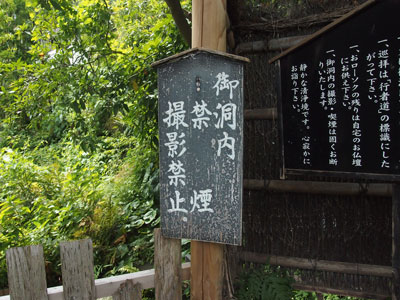 御洞内
禁煙
撮影禁止
一、巡拝は、「行者道」の標識にした
がって下さい。
一、おローソクの残りは自宅のお仏壇
にお供え下さい。
一、御洞内の撮影、喫煙は固くお断
りいたします。
静かな清浄境です。心寂かに
お詣り下さい。